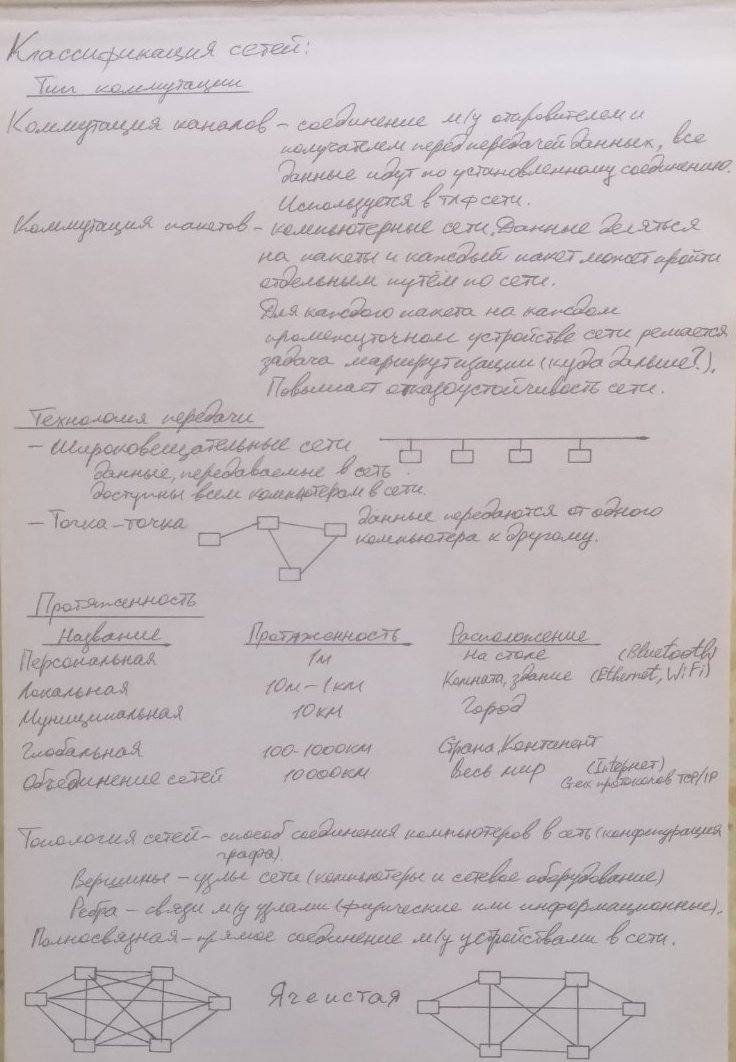 Классификация сетей:
Тип коммутации
Коммутация каналов – соединение м/у отпровителем и
получателем перед передачей данных, все
данные идут по установленному соединению.
Используется в ТЛФ сети.
Коммутация пакетов – компьютерные сети. Данные деляться
на пакеты и каждый пакет может пройти
отдельным путём по сети.
Для каждого пакета на каждом
промежуточном устройстве сети решается
задача маршрутизации (куда дальше?).
Повышает отказоустойчивость сети.
Технология передачи
– Широковещательные сети
данные, передаваемые в сеть
доступны всем компьютерам в сети.
– Точка-точка данные передаются от одного
компьютера к другому.
Протяженность
Название Протяженность Расположение
Персональная 1м На столе (Bluetooth)
Локальная 10м – 1км Комната, здание (Ethernet, WiFi)
Муниципальная 10км Город
Глобальная 100-1000км Страна, Континент
Объединение сетей 10000км Весь мир (Internet)
Стек протоколов TCP/IP
Топология сетей – способ соединения компьютеров в сеть (конфигурация
графа).
Вершины – узлы сети (компьютеры и сетевое оборудование)
Ребра – связи м/у узлами (физические или информационные).
Полносвязная – прямое соединение м/у устройствами в сети.
Ячеистая